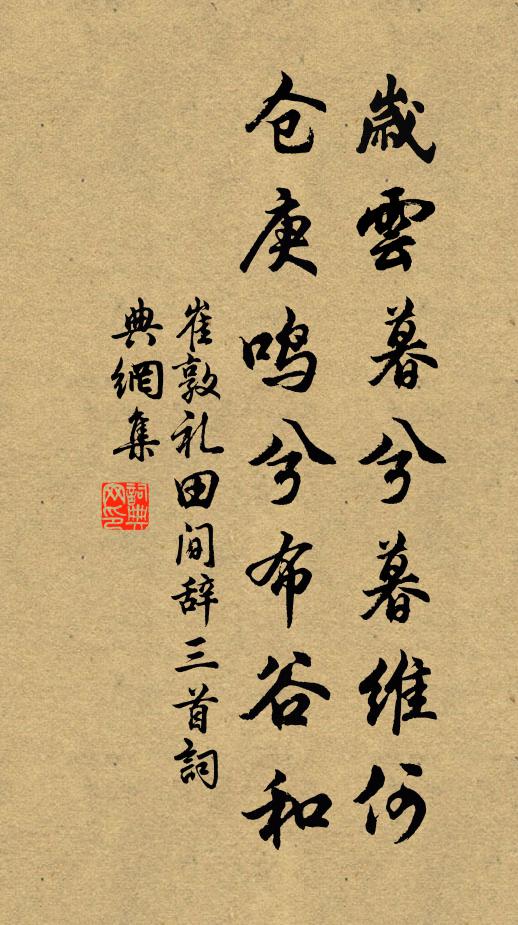 歲雲暮兮暮維何
仓庚鸣兮布谷和
崔敦礼田间辞三首詞
典網集
詞典
网印